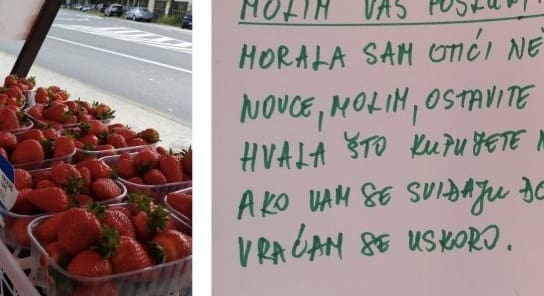 MOLIM VAS
MORALA SAM OTIĆI
NOVCE, MOLIM, OSTAVITE
HVALA ŠTO KUPUJETE
AKO VAM SE SVIĐAJU
VRAĆAM SE USKORO.